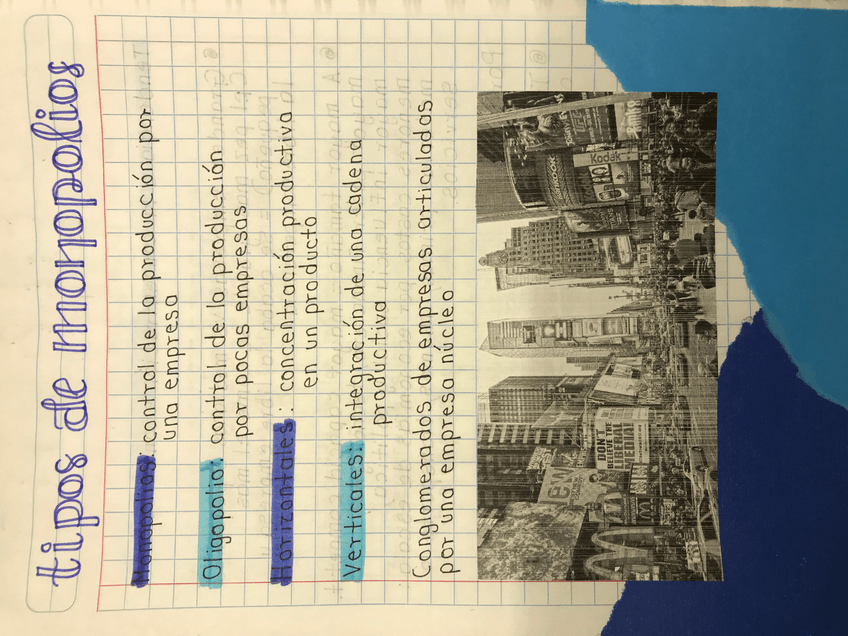 tipos de monopolios
Monopolios: control de la producción por
una empresa
Oligopolio: control de la producción
por pocas empresas
Horizontales: concentración productiva
en un producto
Verticales: integración de una cadena
productiva
Conglomerados de empresas articuladas
por una empresa núcleo
Kodak
DON'T
BELIEVE THE
LIBERAL